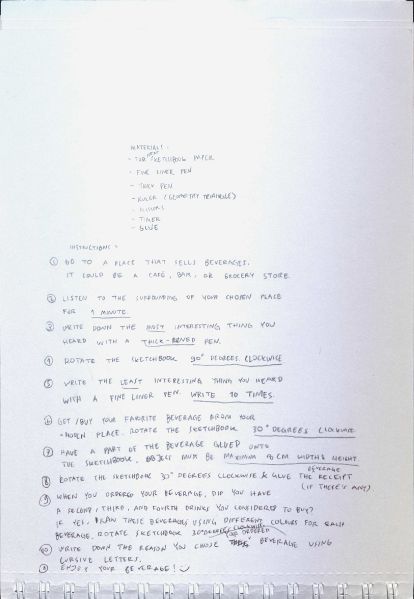 MATERIALS:
- SKETCHBOOK PAPER
- FINE LINER PEN
- THICK PEN
- RULER (GEOMETRY TRIANGLE)
- TIMER
- GLUE
INSTRUCTIONS:
① GO TO A PLACE THAT SELLS BEVERAGES.
IT COULD BE A CAFE, BAR, OR GROCERY STORE.
② LISTEN TO THE SURROUNDING OF YOUR CHOSEN PLACE
FOR 1 MINUTE.
③ WRITE DOWN THE MOST INTERESTING THING YOU
HEARD WITH A THICK-LINED PEN.
④ ROTATE THE SKETCHBOOK 90° DEGREES CLOCKWISE
⑤ WRITE THE LEAST INTERESTING THING YOU HEARD
WITH A FINE LINER PEN. WRITE 10 TIMES.
⑥ GET/BUY YOUR FAVORITE BEVERAGE FROM YOUR
CHOSEN PLACE. ROTATE THE SKETCHBOOK 30° DEGREES CLOCKWISE
⑦ HAVE A PART OF THE BEVERAGE GLUED ONTO
THE SKETCHBOOK, OBJECT MUST BE MAXIMUM CM WIDTH & HEIGHT
⑧ ROTATE THE SKETCHBOOK 30° DEGREES CLOCKWISE & GLUE THE BEVERAGE RECEIPT
(IF THERE'S ANY)
⑨ WHEN YOU ORDERED YOUR BEVERAGE, DID YOU HAVE
A SECOND, THIRD, AND FOURTH DRINKS YOU CONSIDERED TO BUY?
IF YES, DRAW THESE BEVERAGES USING DIFFERENT COLOURS FOR EACH
BEVERAGE. ROTATE SKETCHBOOK 30° DEGREES CLOCKWISE
⑩ WRITE DOWN THE REASON YOU CHOSE YOUR ORDERED BEVERAGE USING
CURSIVE LETTERS.
ENJOY YOUR BEVERAGE!